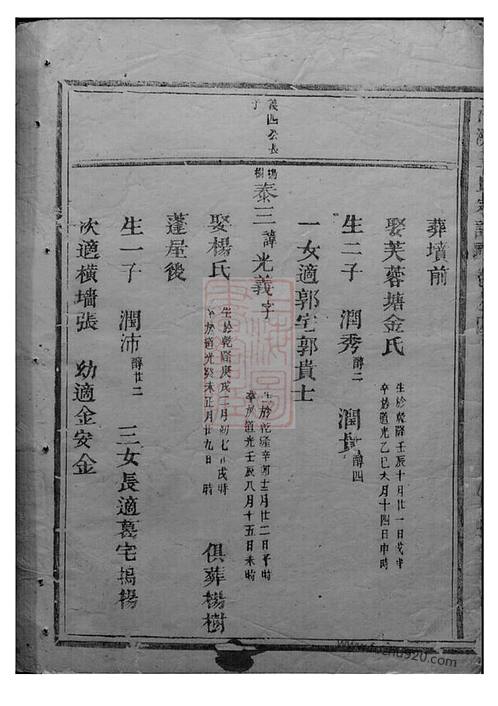 葬墳前
娶芙蓉塘金氏 生於乾隆壬辰十月廿一日戌時 卒於道光乙巳六月十四日申時
生二子 潤秀醇二 潤長醇四
一女適郭宅郭貴士
義四公長子
泰三諱光義字 生於乾隆辛卯十二月廿二日子時 卒於道光壬辰八月十五日未時
娶楊氏 生於乾隆庚戌二月初七日戌時 卒於道光癸未正月廿九日 時 俱葬楊樹
蓬屋後
生一子 潤沛醇廿二 三女長適葛宅揚楊
次適橫墻張 幼適金安金